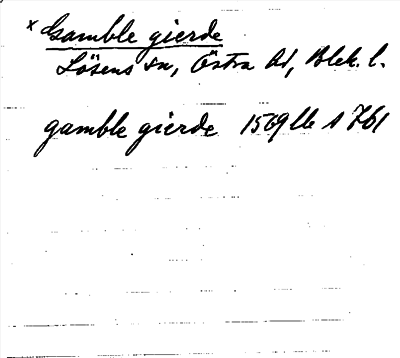 x Gamble gierde
Lösens sn, Östra hd, Blek. l.
gamble gierde 1569 lb A 7b1